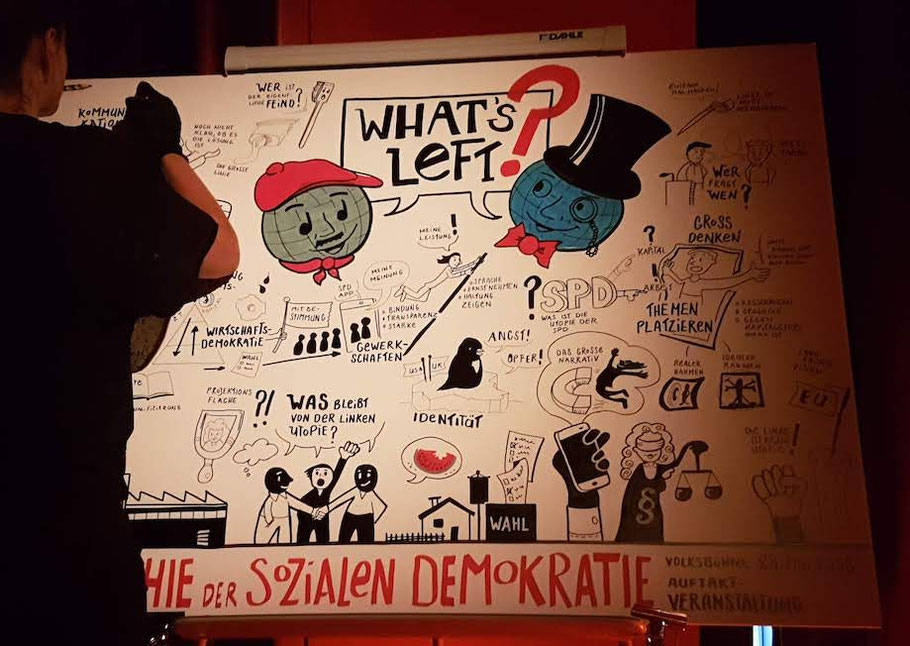 DAHLE
KOMMUNI
KATION
NOCH NICHT
KLAR, OB ES
DIE LÖSUNG
IST
DIE GROSSE
LINIE
WER IST
DER EIGENT-
LICHE FEIND?
WHAT'S
LEFT?
WER
FRAGT
WEN?
GROSS
DENKEN
?
KAPITAL
!
ARBEIT
THEMEN
PLATZIEREN
MEINE
LEISTUNG!
MEINE
MEINUNG
SPD
APP
MITBE-
STIMMUNG
BINDUNG
TRANSPARENZ
STÄRKE
SPRACHE
ERNSTNEHMEN
HALTUNG
ZEIGEN
?
SPD
WAS IST DIE
UTOPIE DER
SPD
WIRTSCHAFTS-
DEMOKRATIE
WAHL
GEWERK-
SCHAFTEN
USA
UK
ANGST!
OPFER!
IDENTITÄT
DAS GROSSE
NARRATIV
REALER
RAHMEN
IDEALER
RAHMEN
EU
PROJEKTIONS
FLÄCHE
?!
WAS BLEIBT
VON DER LINKEN
UTOPIE?
WAHL
§
HIE DER SOZIALEN DEMOKRATIE
VOLKSBÜHNE
AUFTAKT-
VERANSTALTUNG